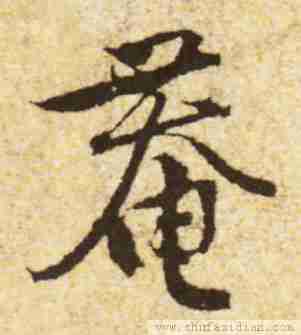 菴
www.shufazidian.com